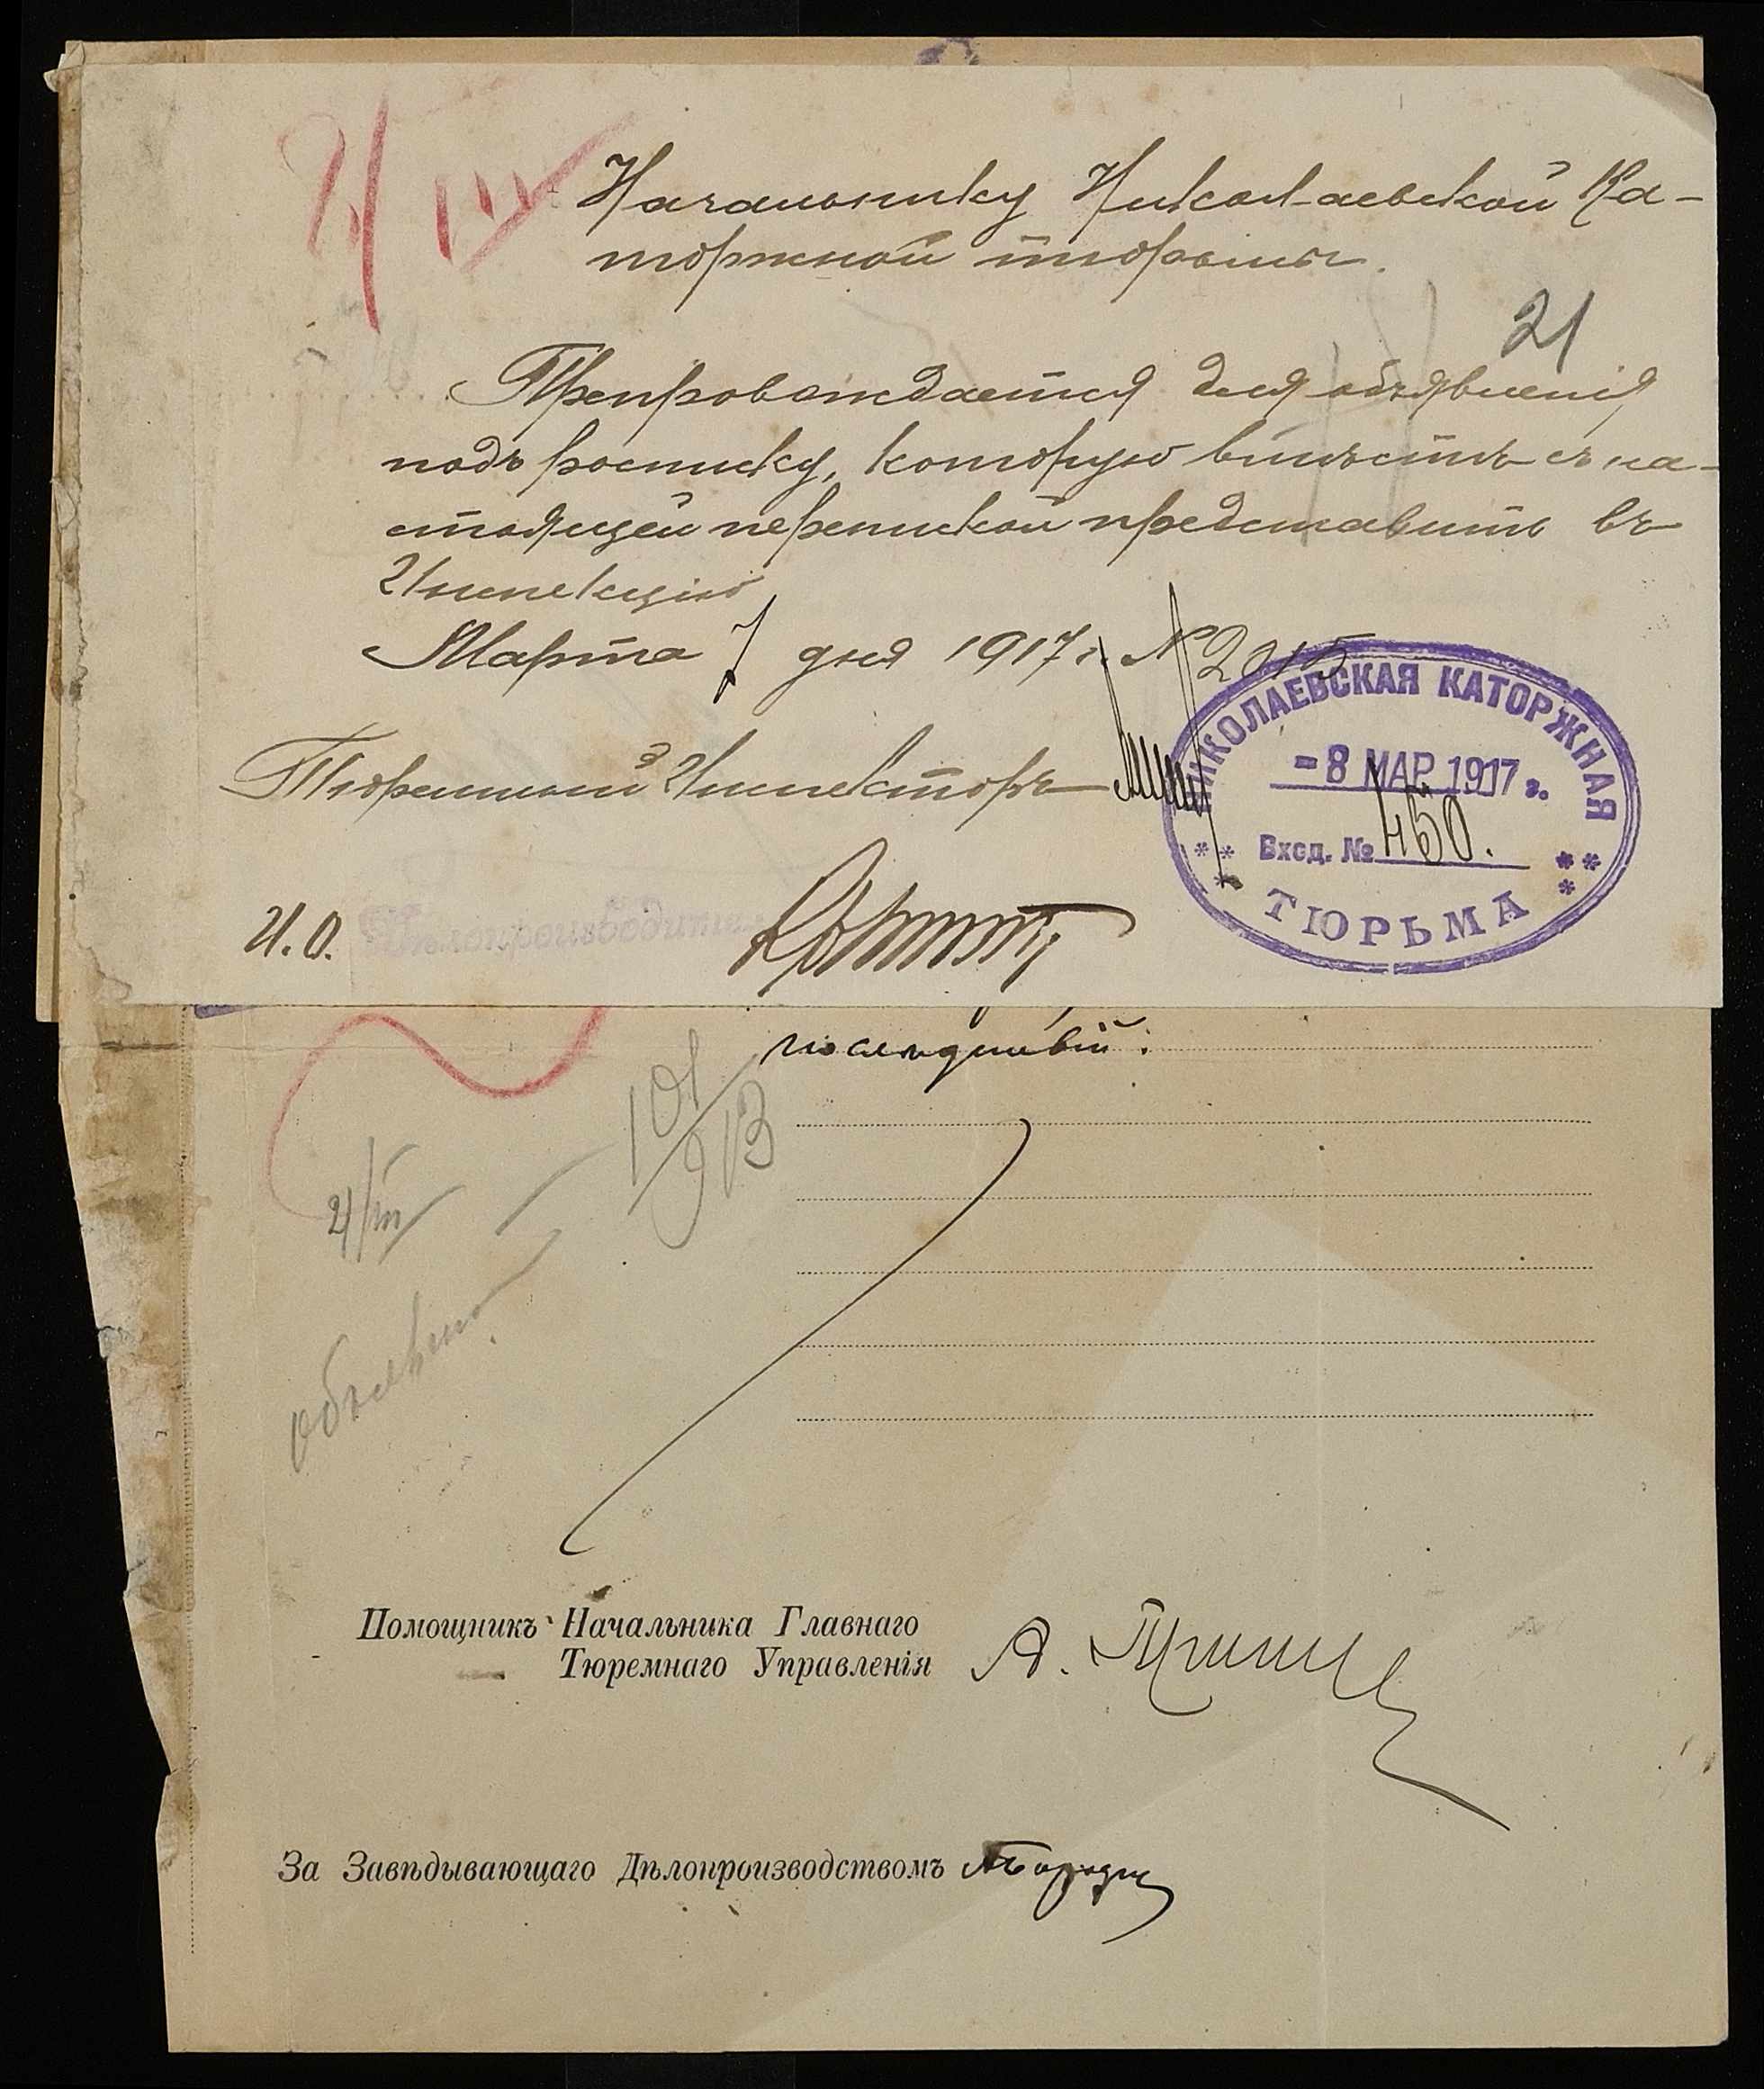 Начальнику Николаевской Ка-
торжной тюрьмы.
21
Препровождается для объявленія
подъ росписку, которую вмѣстѣ съ на-
стоящей перепиской представить въ
Инспекцію
Марта 7 дня 1917 г. № 2015
Тюремный Инспекторъ
НИКОЛАЕВСКАЯ КАТОРЖНАЯ
- 8 МАР 1917 г.
Вход. № 450.
ТЮРЬМА
И. О. Дѣлопроизводитель
послѣдствій.
101/913
объявлено
Помощникъ Начальника Главнаго
Тюремнаго Управленія
За Завѣдывающаго Дѣлопроизводствомъ